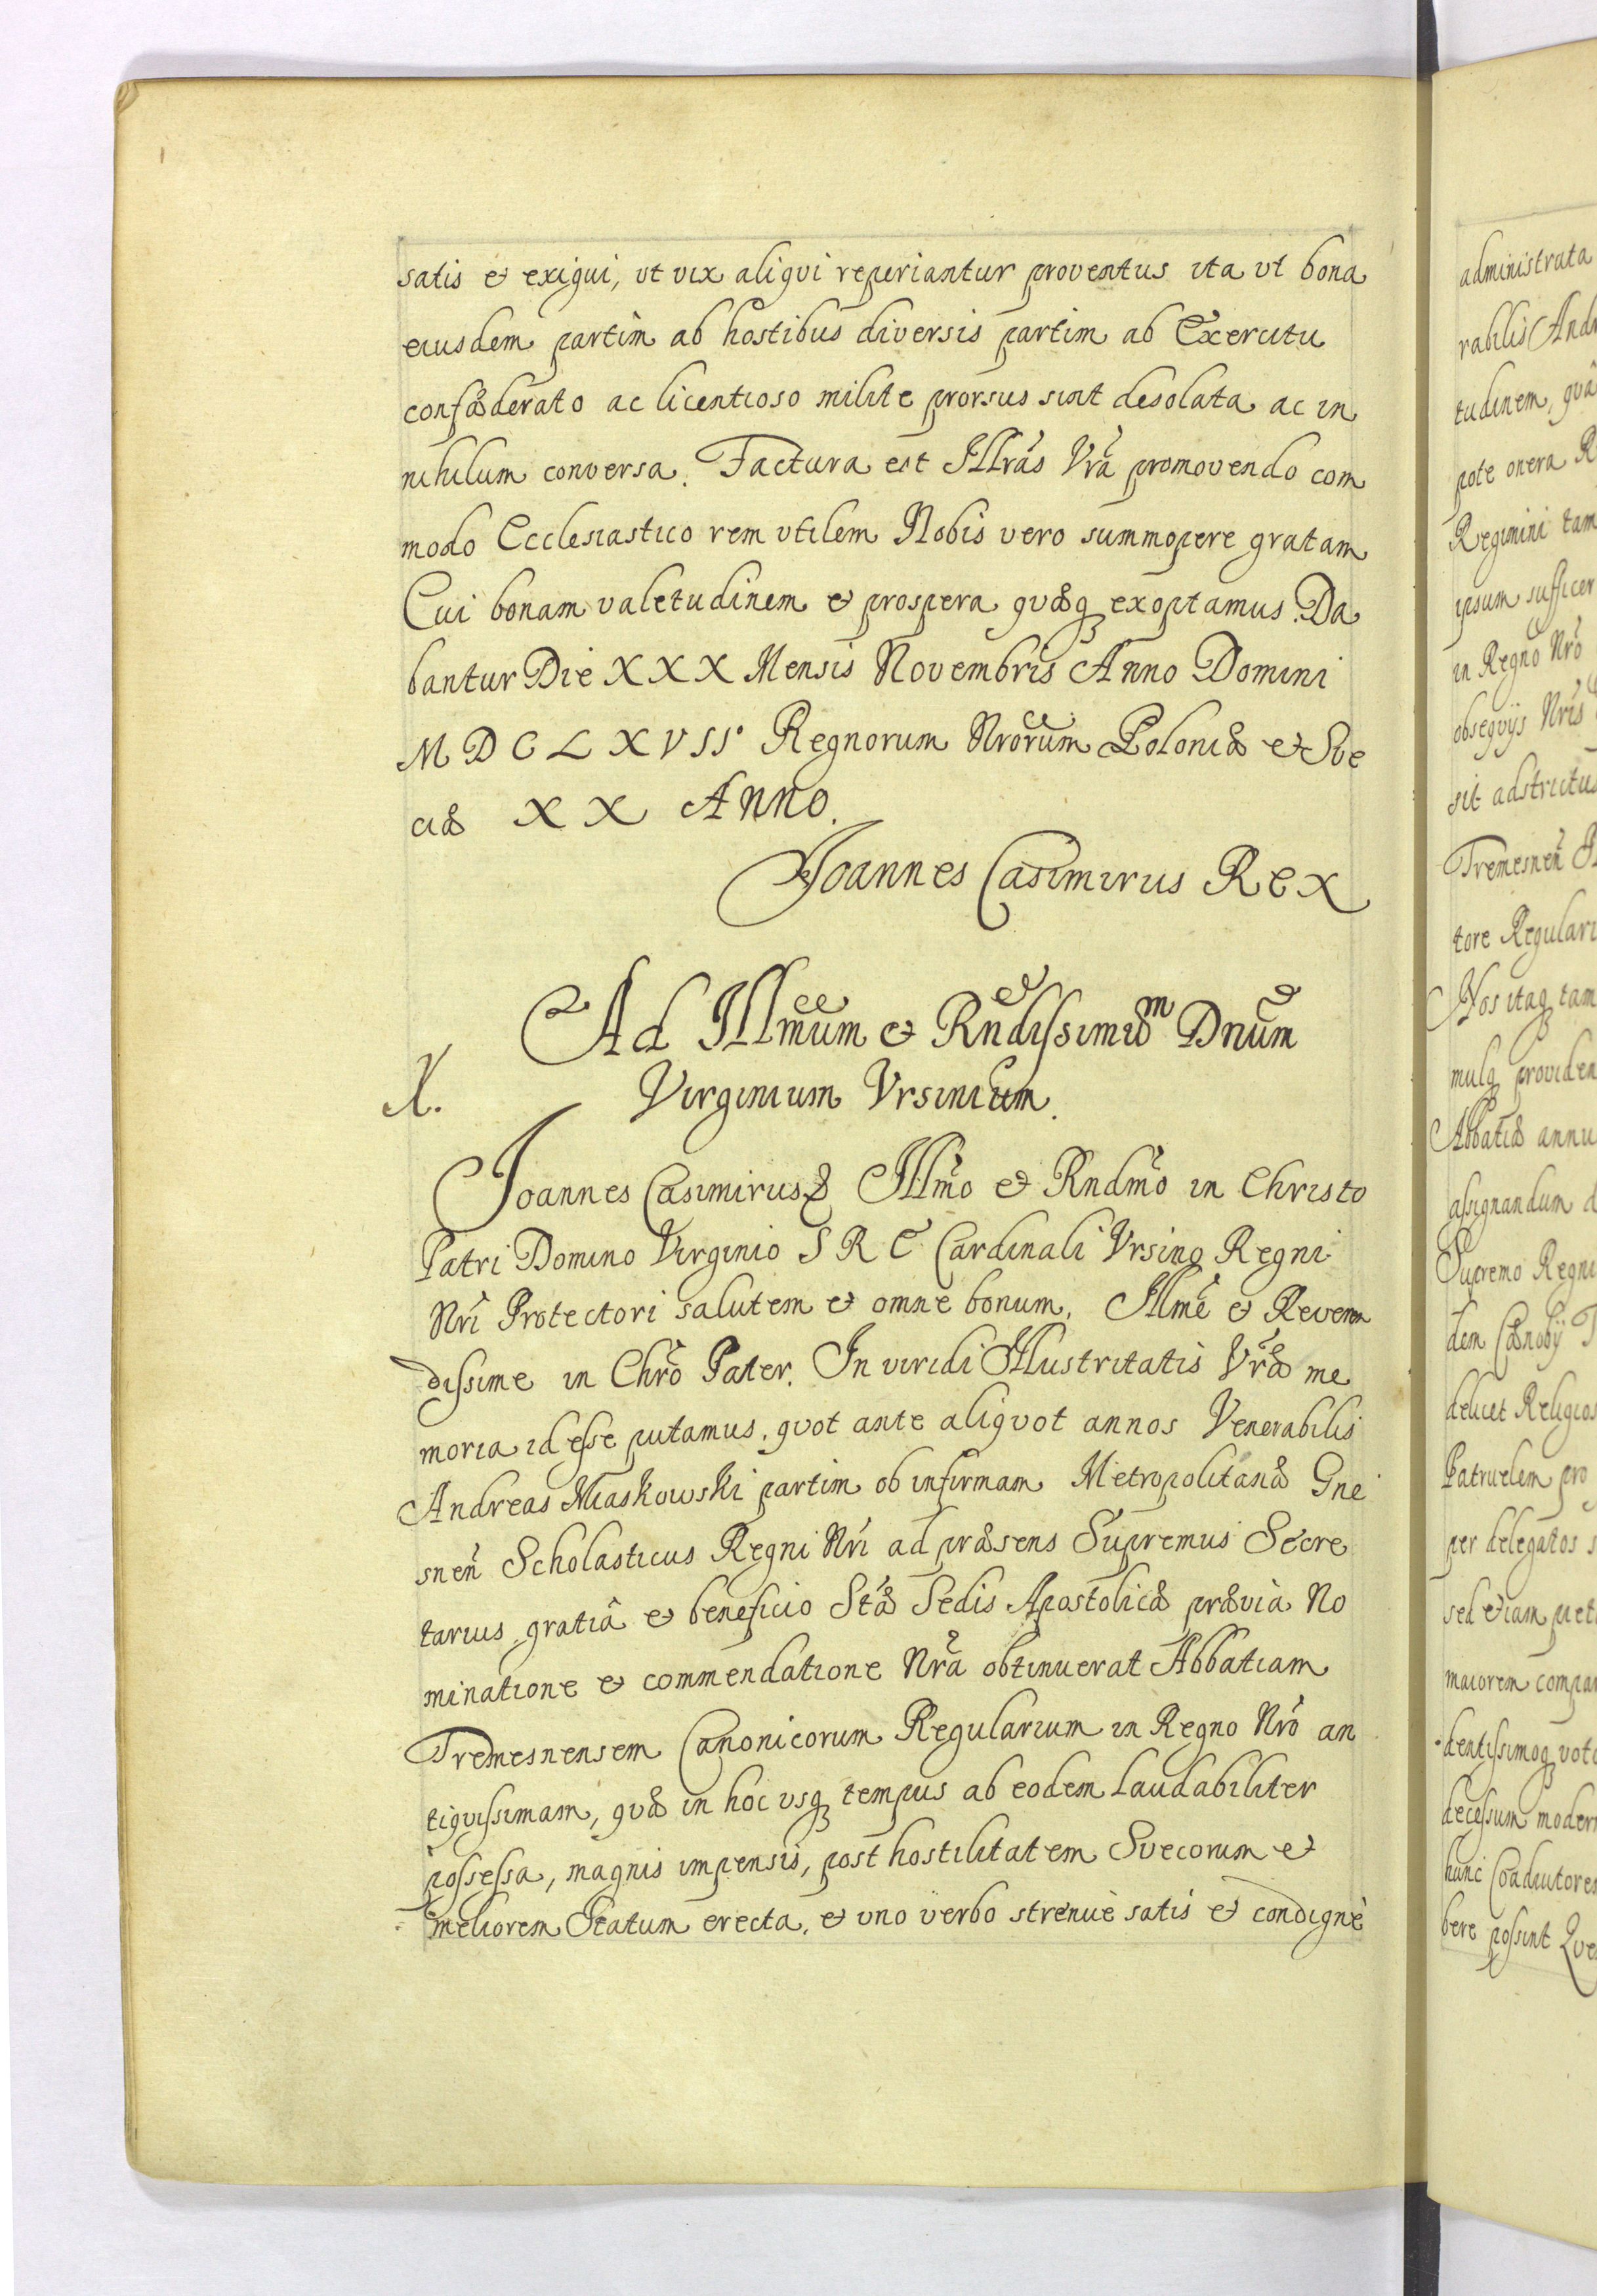 satis et exigui, ut vix aliqui reperiantur proventus ita ut bona
eiusdem partim ab hostibus diversis partim ab Exercitu
confæderato ac licentioso milite prorsus sint desolata ac in
nihilum conversa. Factura est Illrãs Vrã promovendo com
modo Ecclesiastico rem vtilem Nobis vero summopere gratam
Cui bonam valetudinem et prospera quæq exoptamus. Da
bantur Die XXX Mensis Novembris Anno Domini
MDCLXVII° Regnorum Nrorum Poloniæ et Sve
ciæ XX Anno.
Joannes Casimirus Rex
Ad Illmum et Rndissimum Dnum
X. Virginium Vrsinium.
Joannes Casimirus & Illmo et Rndmo in Christo
Patri Domino Virginio S R E Cardinali Vrsino Regni
Nri Protectori salutem et omne bonum. Illme et Reveren
dissime in Chro Pater. In viridi Illustritatis Vræ me
moria id esse putamus, quot ante aliquot annos Venerabilis
Andreas Miaskowski partim ob infirmam Metropolitanæ Gne
snen Scholasticus Regni Nri ad præsens Supremus Secre
tarius gratiâ et beneficio Stæ Sedis Apostolicæ prævia No
minatione et commendatione Nra obtinuerat Abbatiam
Tremesnensem Canonicorum Regularium in Regno Nro an
tiquissimam, quæ in hoc usq tempus ab eodem laudabiliter
possessa, magnis impensis, post hostilitatem Svecorum et
meliorem Statum erecta, et uno verbo strenue satis et condignè
administrata
rabilis
tudinem, quâ
pote onera R
Regimini tam
ipsum sufficer
in Regno Nro
obsequijs Nris
sit adstrictus
Tremesnen
tore Regulari
Nos itaq tam
mulq providen
Abbatiæ annu
assignandum d
Supremo Regni
dem Cænobij T
delicet Religios
Patruelem pro
per delegatos s
sed etiam pet
maiorem compar
dentissimoq voto
decessum modern
hunc Coadiutorem
bere possint Que